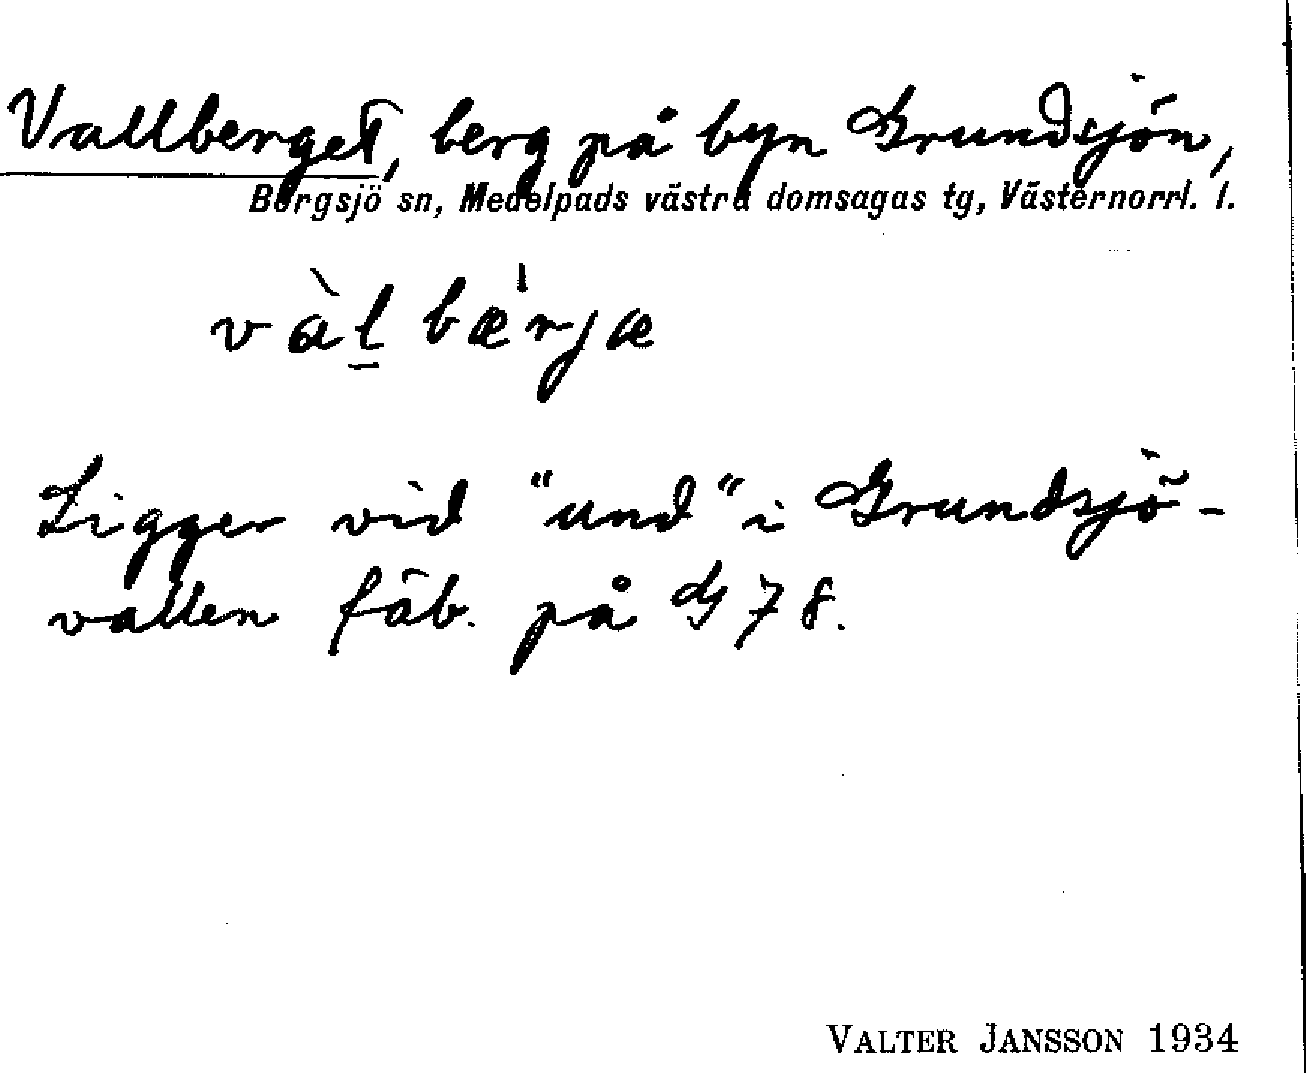 Vallberget, berg på byn Grundsjön,
Bergsjö sn, Medelpads västra domsagas tg, Västernorrl. l.
vàl̠ bæ̀rjæ
Ligger vid "und" i Grundsjö-
vallen fäb. på G 78.
VALTER JANSSON 1934